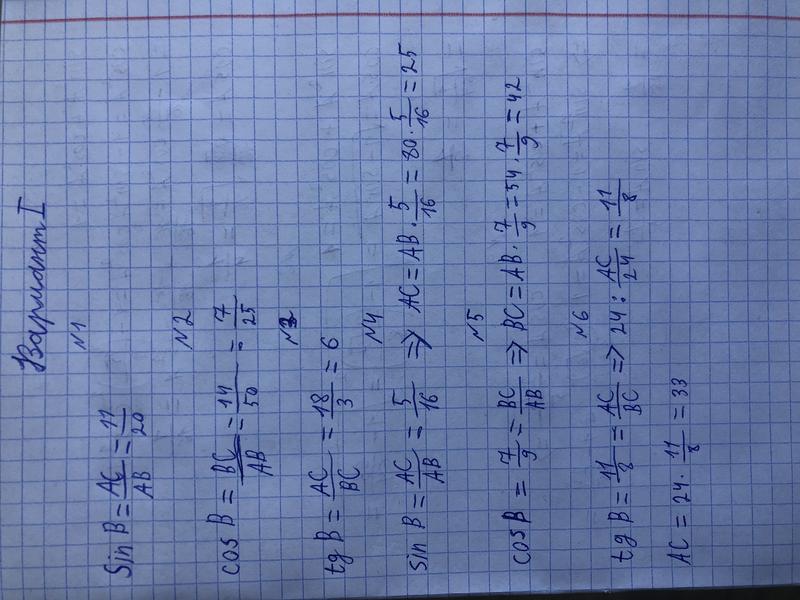 Вариант I
№1
Sin B = AC/AB = 11/20
№2
cos B = BC/AB = 14/50 = 7/25
№3
tg B = AC/BC = 18/3 = 6
№4
sin B = AC/AB = 5/16 => AC = AB · 5/16 = 80 · 5/16 = 25
№5
cos B = 7/9 = BC/AB => BC = AB · 7/9 = 54 · 7/9 = 42
№6
tg B = 11/8 = AC/BC => 24 : AC/24 = 11/8
AC = 24 · 11/8 = 33